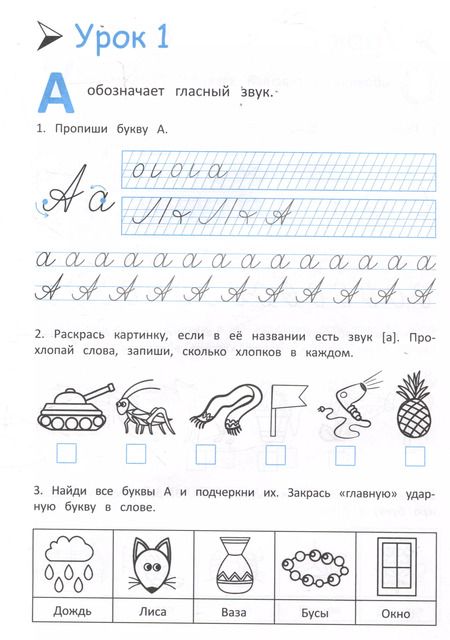 Урок 1
А обозначает гласный звук.
1. Пропиши букву А.
А а
о ι о ι о ι а
а а а а а а а а а а а а а а
А А А А А А А А А А А
2. Раскрась картинку, если в её названии есть звук [а]. Про-
хлопай слова, запиши, сколько хлопков в каждом.
3. Найди все буквы А и подчеркни их. Закрась «главную» удар-
ную букву в слове.
Дождь Лиса Ваза Бусы Окно